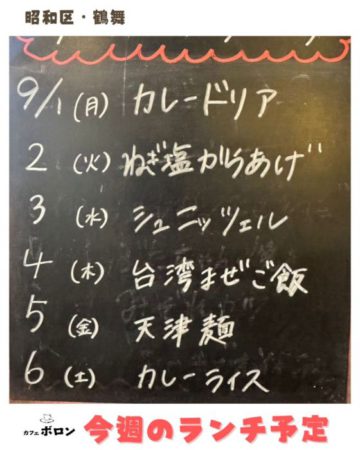 昭和区・鶴舞
9/1(月) カレードリア
2(火) ねぎ塩からあげ
3(水) シュニッツェル
4(木) 台湾まぜご飯
5(金) 天津麺
6(土) カレーライス
カフェ ボロン 今週のランチ予定